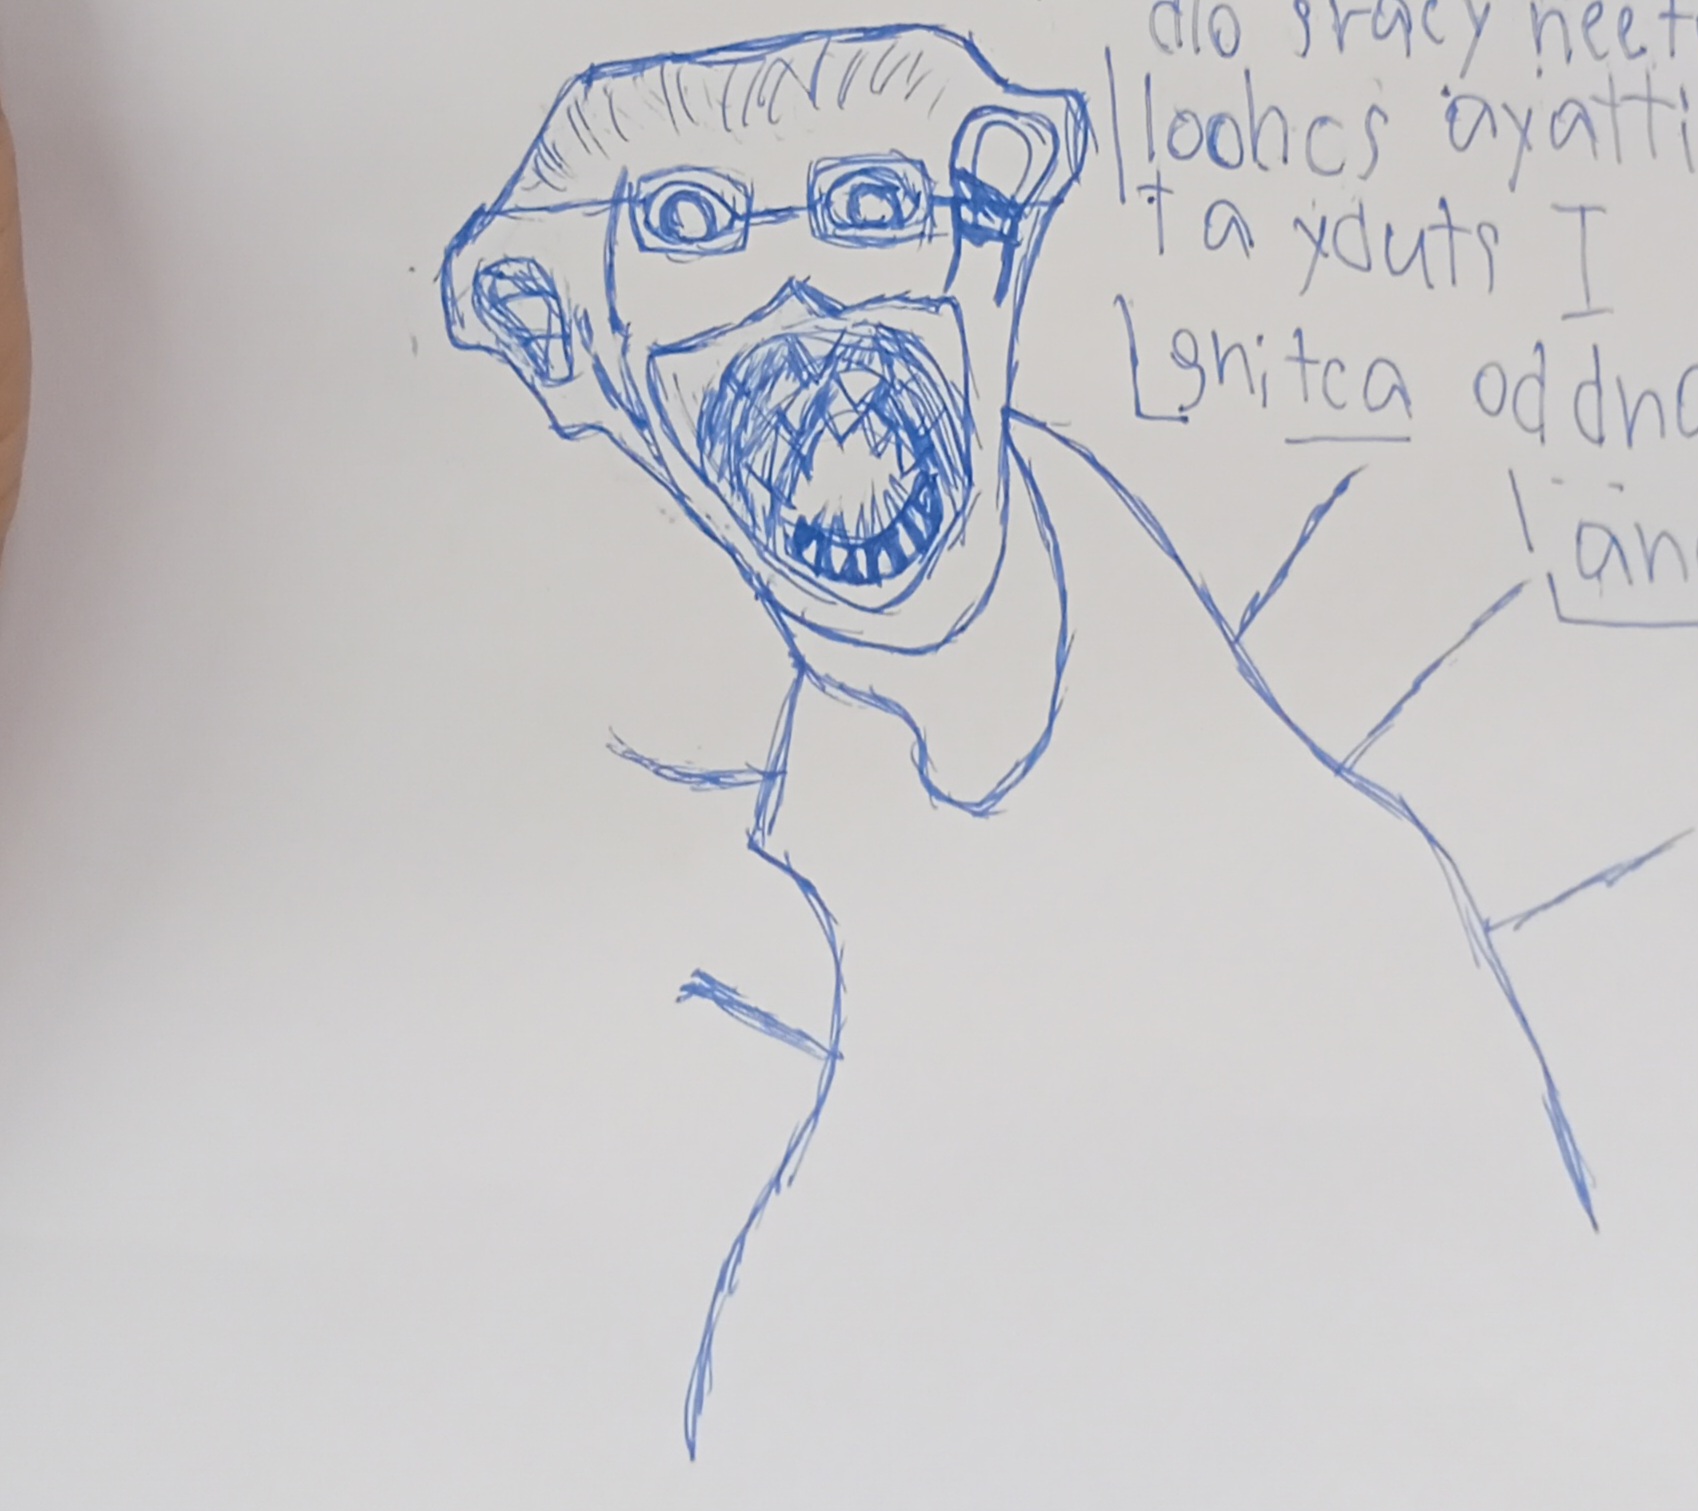 dlo sraey neet
loohcs ayatti
ta yduts I
gnitca od dna
an